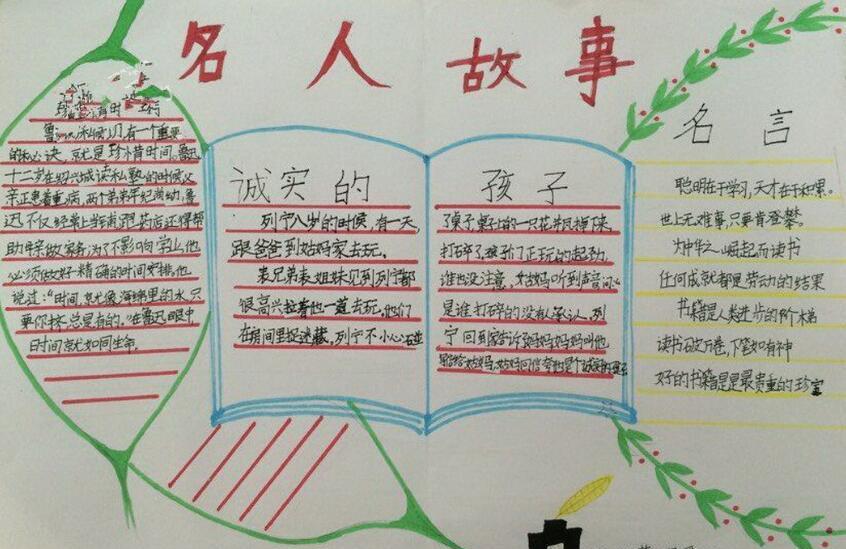 名人故事
珍惜时间
鲁迅小时候，有一个重要
的秘诀，就是珍惜时间。鲁迅
十二岁在绍兴城读私塾的时候父
亲正患着重病，两个弟弟年纪尚幼，鲁
迅不仅经常上当铺跑药店还得帮
助母亲做家务为了不影响学业他
必须做好精确的时间安排他
说过：“时间就像海绵里的水只
要你挤，总是有的。”在鲁迅眼中，
时间就如同生命。
诚实的
列宁八岁的时候，有一天，
跟爸爸到姑妈家去玩。
表兄弟表姐妹见到列宁都
很高兴拉着他一道去玩。他们
在房间里捉迷藏，列宁不小心碰
孩子
了桌子，桌子上的一只花瓶掉下来，
打碎了孩子们正玩的起劲，
谁也没注意，姑妈听到声音问
是谁打碎的没有人承认，列
宁回到家告诉了妈妈妈妈叫他
写信给姑妈，姑妈回信夸他是个诚实的孩子
名言
聪明在于学习，天才在于积累。
世上无难事，只要肯登攀。
为中华之崛起而读书
任何成就都是劳动的结果
书籍是人类进步的阶梯
读书破万卷，下笔如有神
好的书籍是是最贵重的珍宝